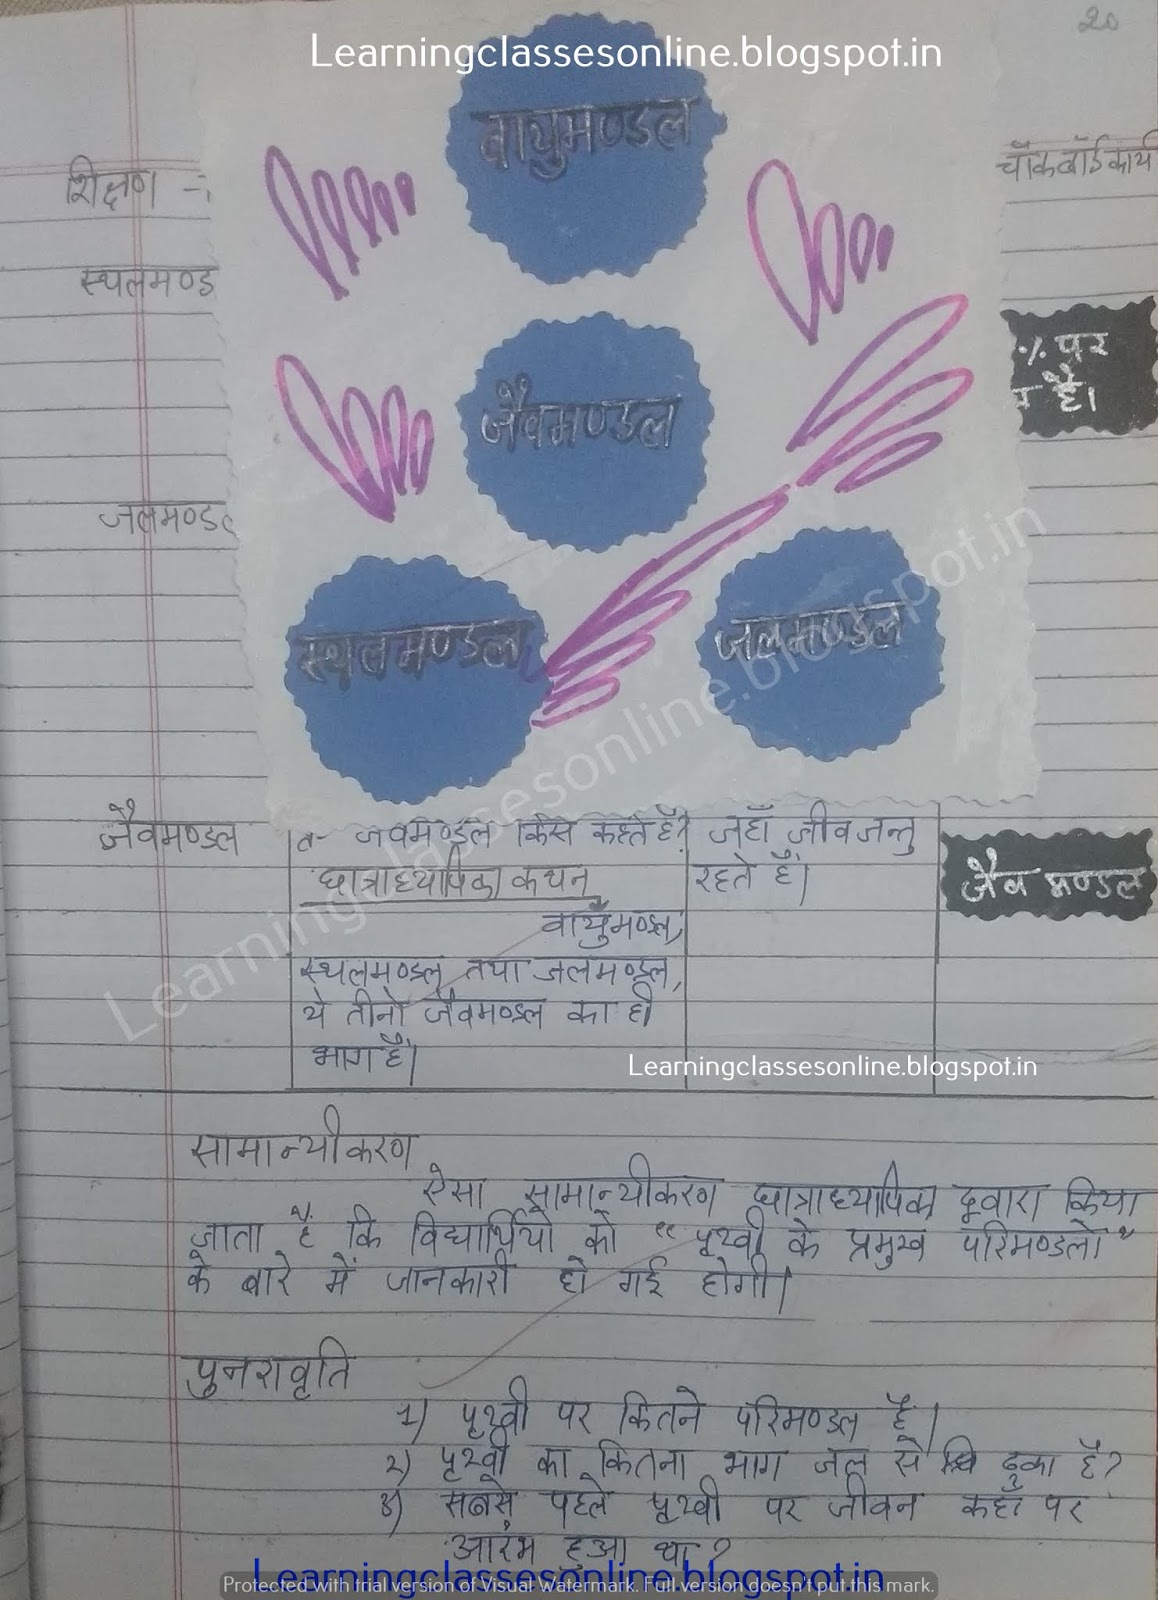 20
Learningclassesonline.blogspot.in
वायुमण्डल
चॉकबॉर्डकार्य
शिक्षण
स्थलमण्ड
% पर
है।
जैवमण्डल
जलमण्डल
स्थलमण्डल
जलमण्डल
Learningclassesonline.blogspot.in
जैवमण्डल
जैवमण्डल किसे कहते हैं?
जहाँ जीव जन्तु
रहते हैं।
जैव मण्डल
छात्राध्यापिका कथन
वायुमण्डल,
स्थलमण्डल तथा जलमण्डल,
ये तीनो जैवमण्डल का ही
भाग हैं।
Learningclassesonline.blogspot.in
सामान्यीकरण
ऐसा सामान्यीकरण छात्राध्यापिका द्वारा किया
जाता हैं कि विद्यार्थियो को "पृथ्वी के प्रमुख परिमण्डलो"
के बारे में जानकारी हो गई होगी।
पुनरावृति
1) पृथ्वी पर कितने परिमण्डल हैं।
2) पृथ्वी का कितना भाग जल से ढका है?
3) सबसे पहले पृथ्वी पर जीवन कहाँ पर
आरंभ हुआ था?
Learningclassesonline.blogspot.in
Protected with trial version of Visual Watermark. Full version doesn't put this mark.